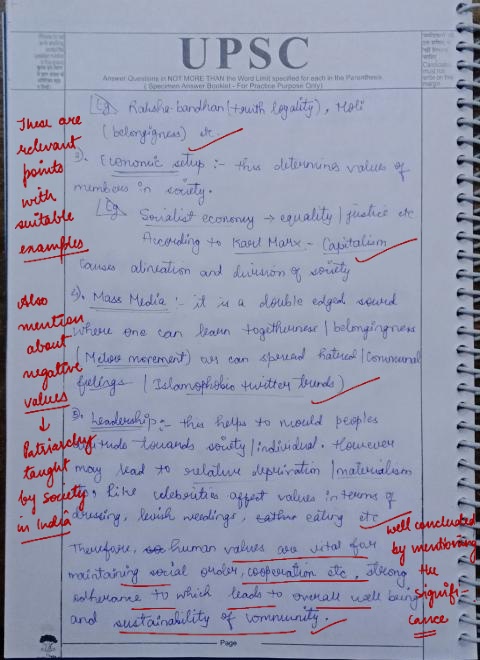 UPSC
Answer Questions in NOT MORE THAN the Word Limit specified for each in the Parenthesis
( Specimen Answer Booklet - For Practice Purpose Only)
Eg Raksha-bandhan (truth loyality), Holi
(belongigness) etc.
3). Economic setup :- this determines values of
members in society.
Eg Socialist economy → equality / justice etc
According to Karl Marx - Capitalism
causes alineation and division of society
4). Mass Media :- it is a double edged sword
where one can learn togetherness / belongingness
(Metoo movement) or can spread hatred / communal
feelings (Islamophobia twitter trends)
5). Leadership :- this helps to mould peoples
attitude towards society / individual. However
may lead to relative deprivation / materialism
Eg, like celebrities affect values in terms of
dressing, lavish weedings, eating etc
Therefore, human values are vital for
maintaining social order, cooperation etc, strong
adherance to which leads to overall well being
and sustainability of community.
Page
These are
relevant
points
with
suitable
examples
Also
mention
about
negative
values
↓
Patriarchy
taught
by society
in India
well concluded
by mentioning
the
signifi-
cance